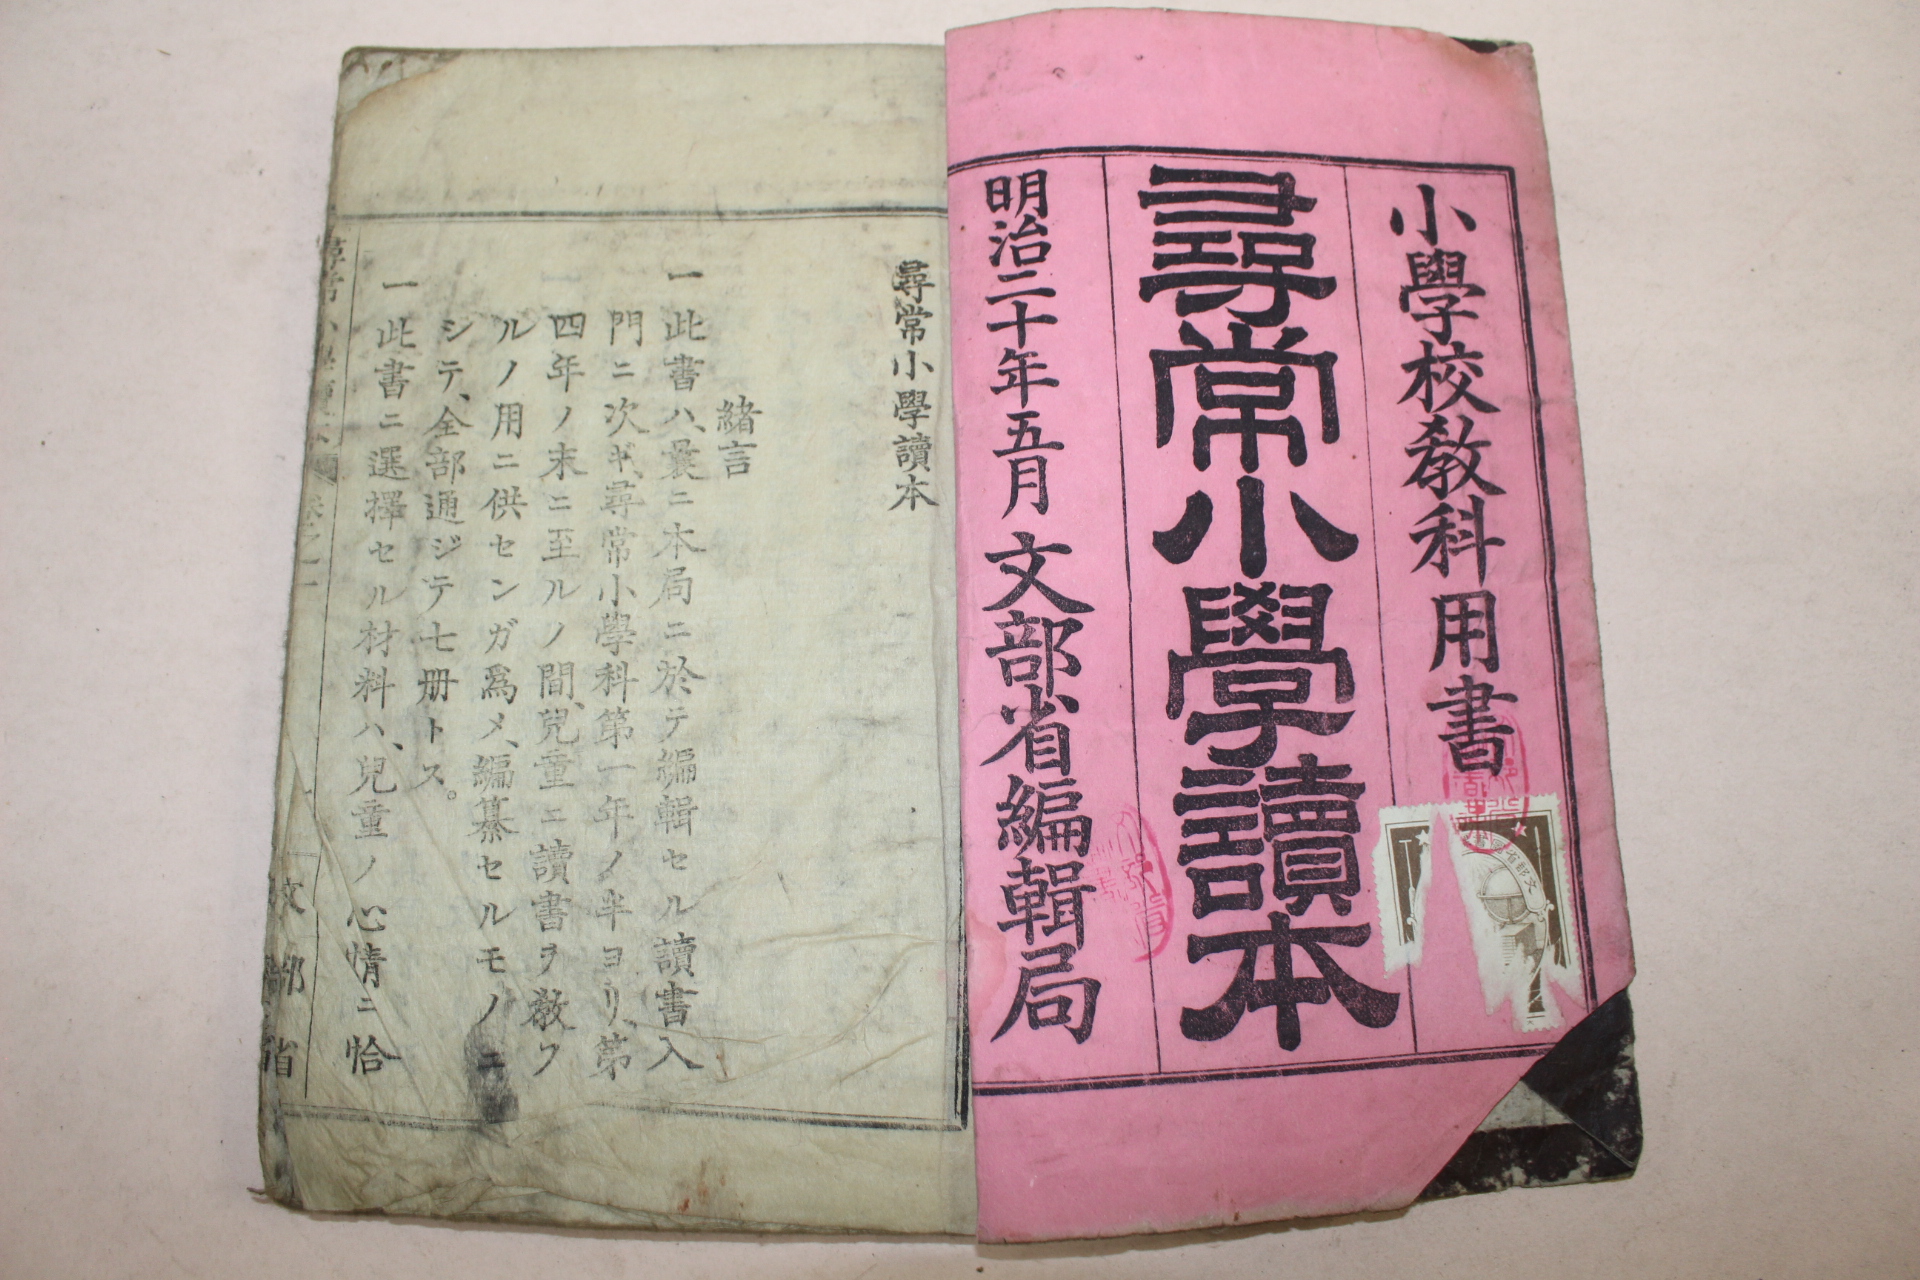 小學校敎科用書
尋常小學讀本
明治二十年五月 文部省編輯局
文部省
尋常小學讀本
緒言
一 此書ハ、曩ニ本局ニ於テ編輯セル讀書入
門ニ次ギ、尋常小學科第一年ノ半ヨリ、第
四年ノ末ニ至ルノ間、兒童ニ讀書ヲ敎フ
ルノ用ニ供センガ爲メ、編纂セルモノニ
シテ、全部通ジテ七册トス。
一 此書ニ選擇セル材料ハ、兒童ノ心情ニ恰
尋常小學讀本 卷之一
一
文部省